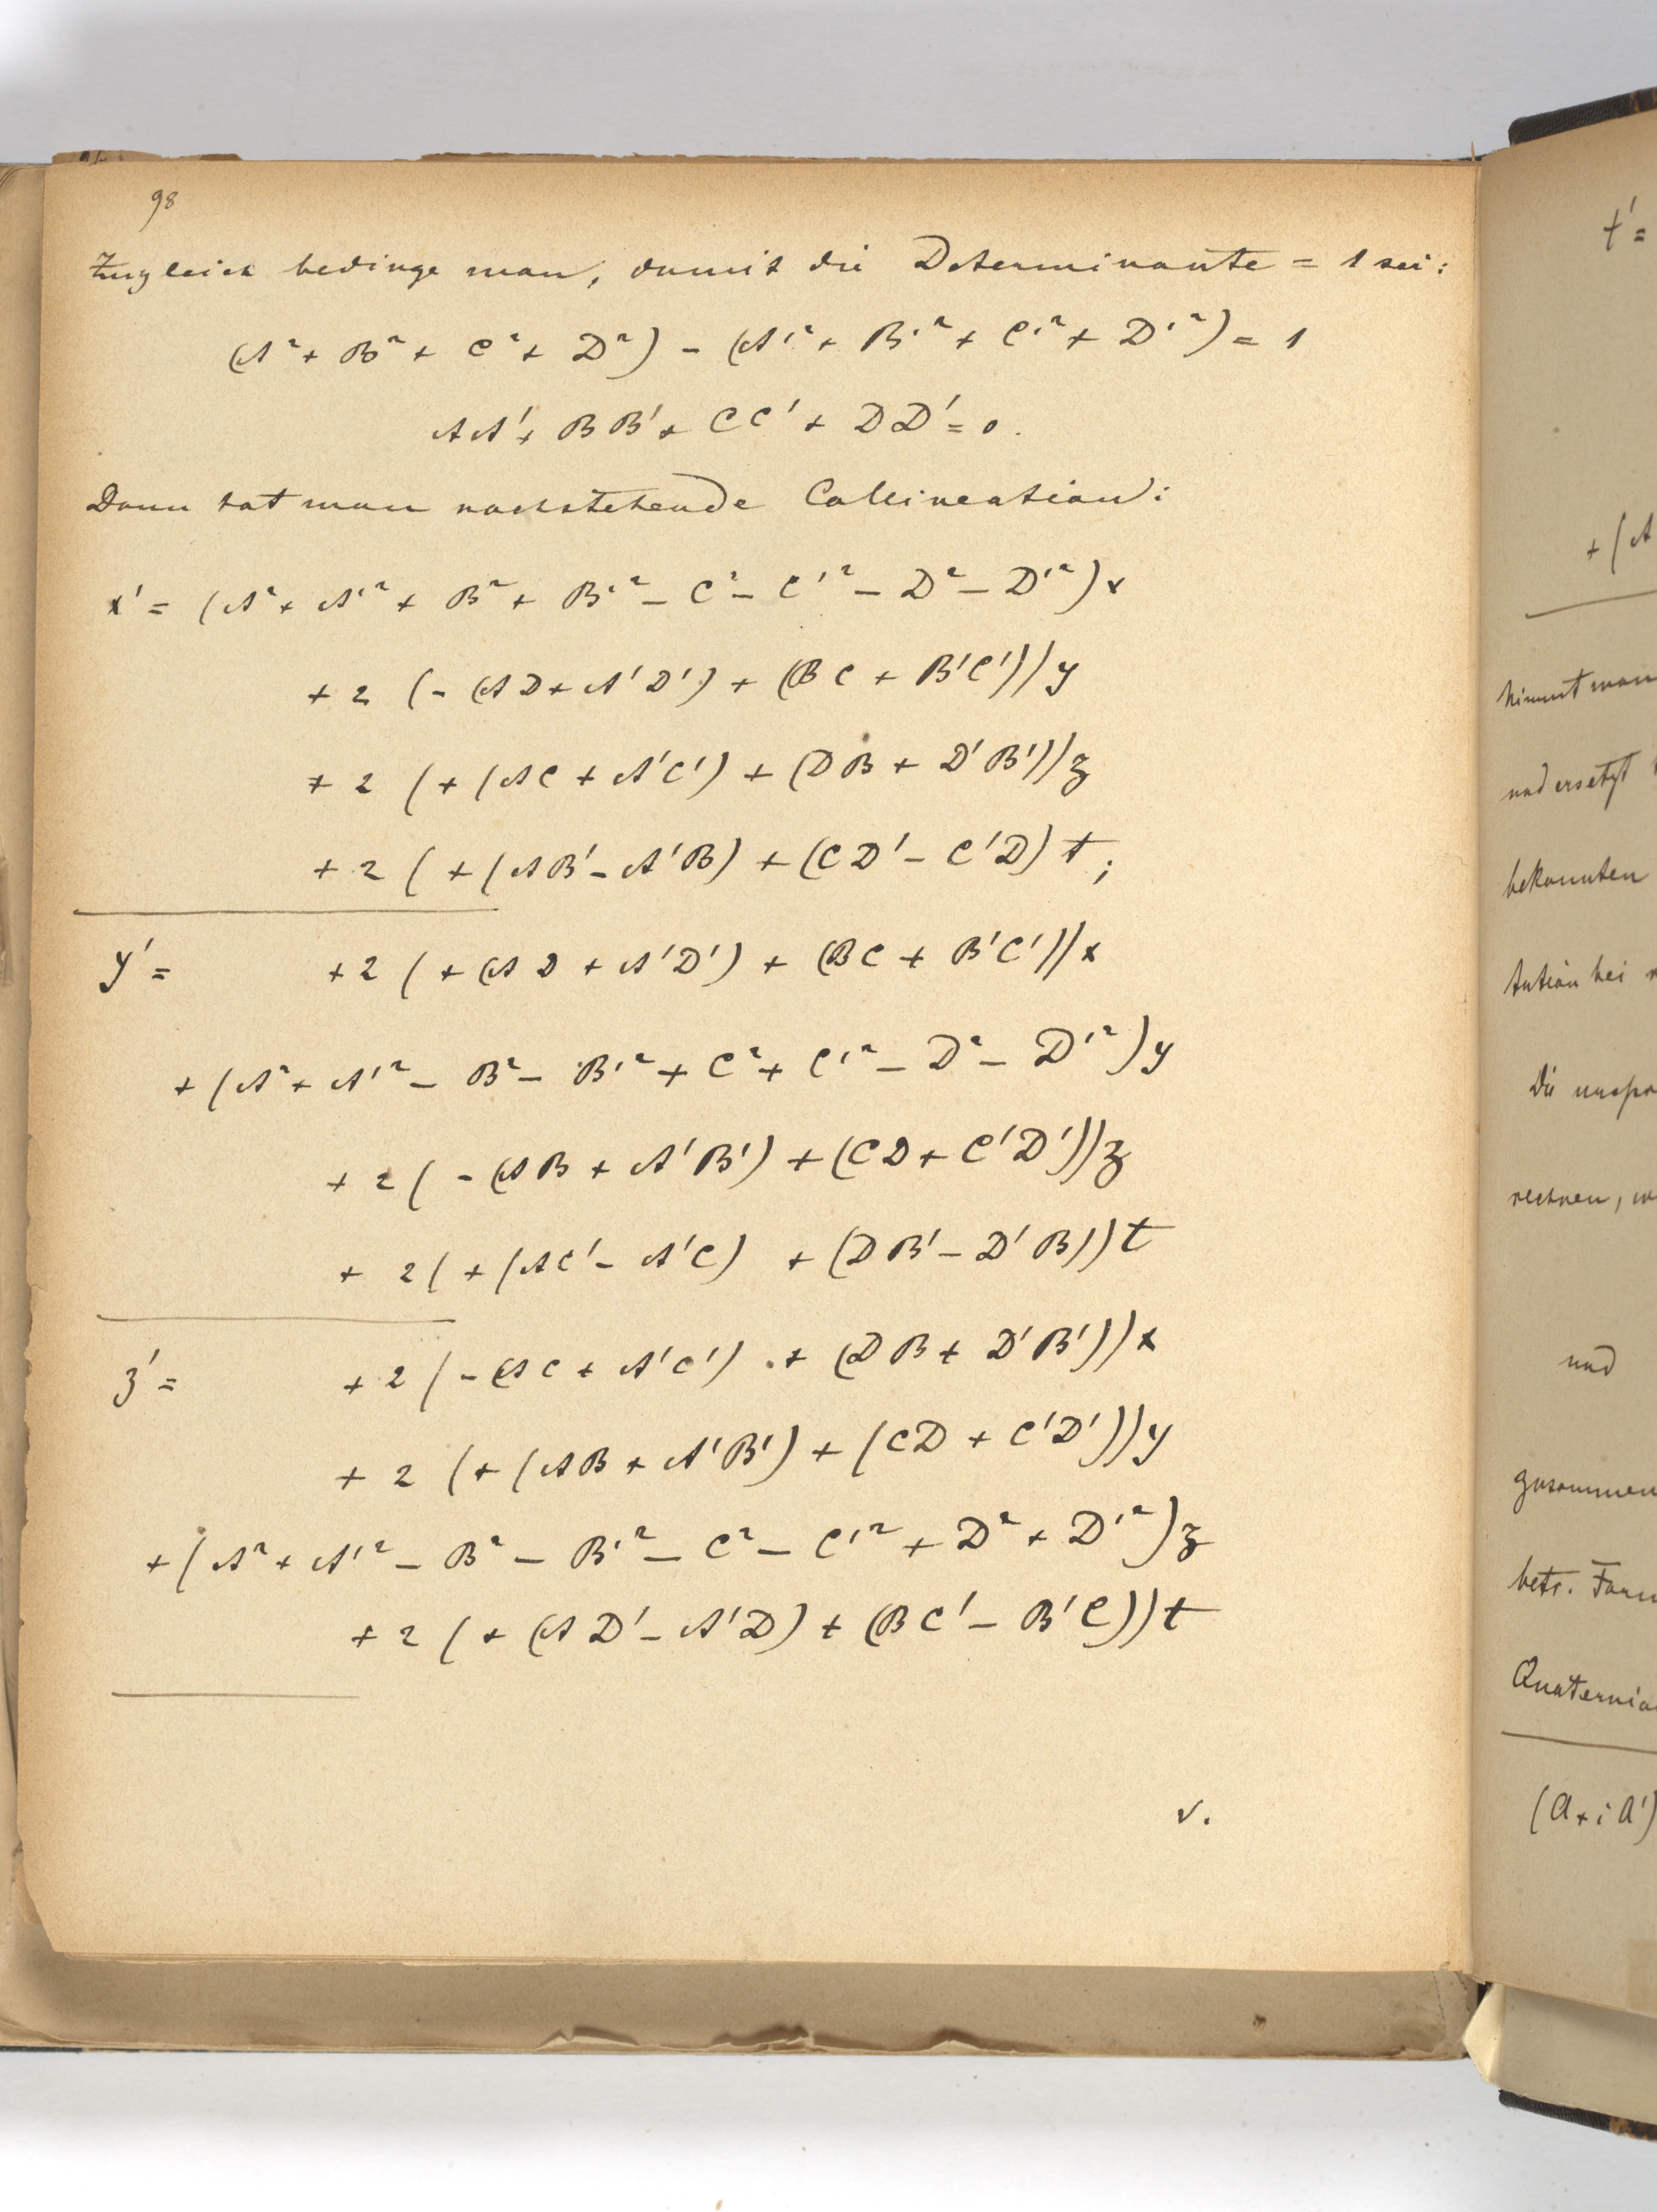 98
Zugleich bedinge man, damit die Determinante = 1 sei:
(A² + B² + C² + D²) - (A'² + B'² + C'² + D'²) = 1
AA' + BB' + CC' + DD' = 0.
Dann hat man nachstehende Collineation:
x' = (A² + A'² + B² + B'² - C² - C'² - D² - D'²)x
+ 2 (- (AD + A'D') + (BC + B'C'))y
+ 2 (+ (AC + A'C') + (DB + D'B'))z
+ 2 ( + (AB' - A'B) + (CD' - C'D) t;
y' = + 2 ( + (AD + A'D') + (BC + B'C'))x
+ (A² + A'² - B² - B'² + C² + C'² - D² - D'²)y
+ 2 ( - (AB + A'B') + (CD + C'D'))z
+ 2 ( + (AC' - A'C) + (DB' - D'B))t
z' = + 2 ( - (AC + A'C') + (DB + D'B'))x
+ 2 (+ (AB + A'B') + (CD + C'D'))y
+ (A² + A'² - B² - B'² - C² - C'² + D² + D'²)z
+ 2 ( + (AD' - A'D) + (BC' - B'C))t
v.
t' =
+ (A
nimmt man
und ersetzt
bekannten
tution bei
Die
rechnen,
und
zusammen
betr. Form
(A + i A')